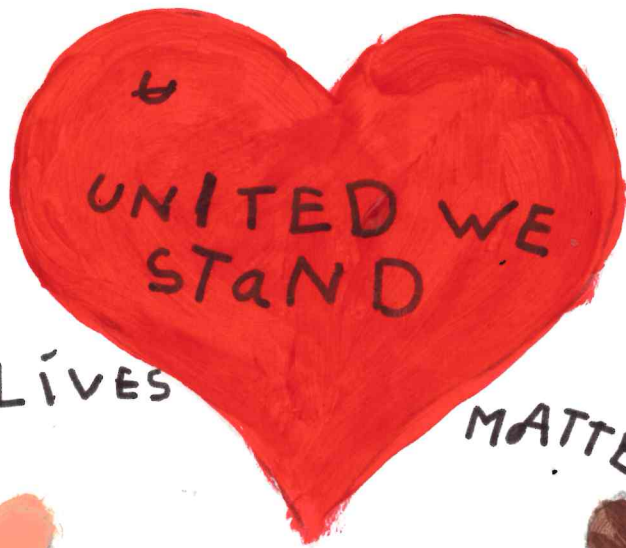 UNITED WE
STaND
LiVES
MATTE